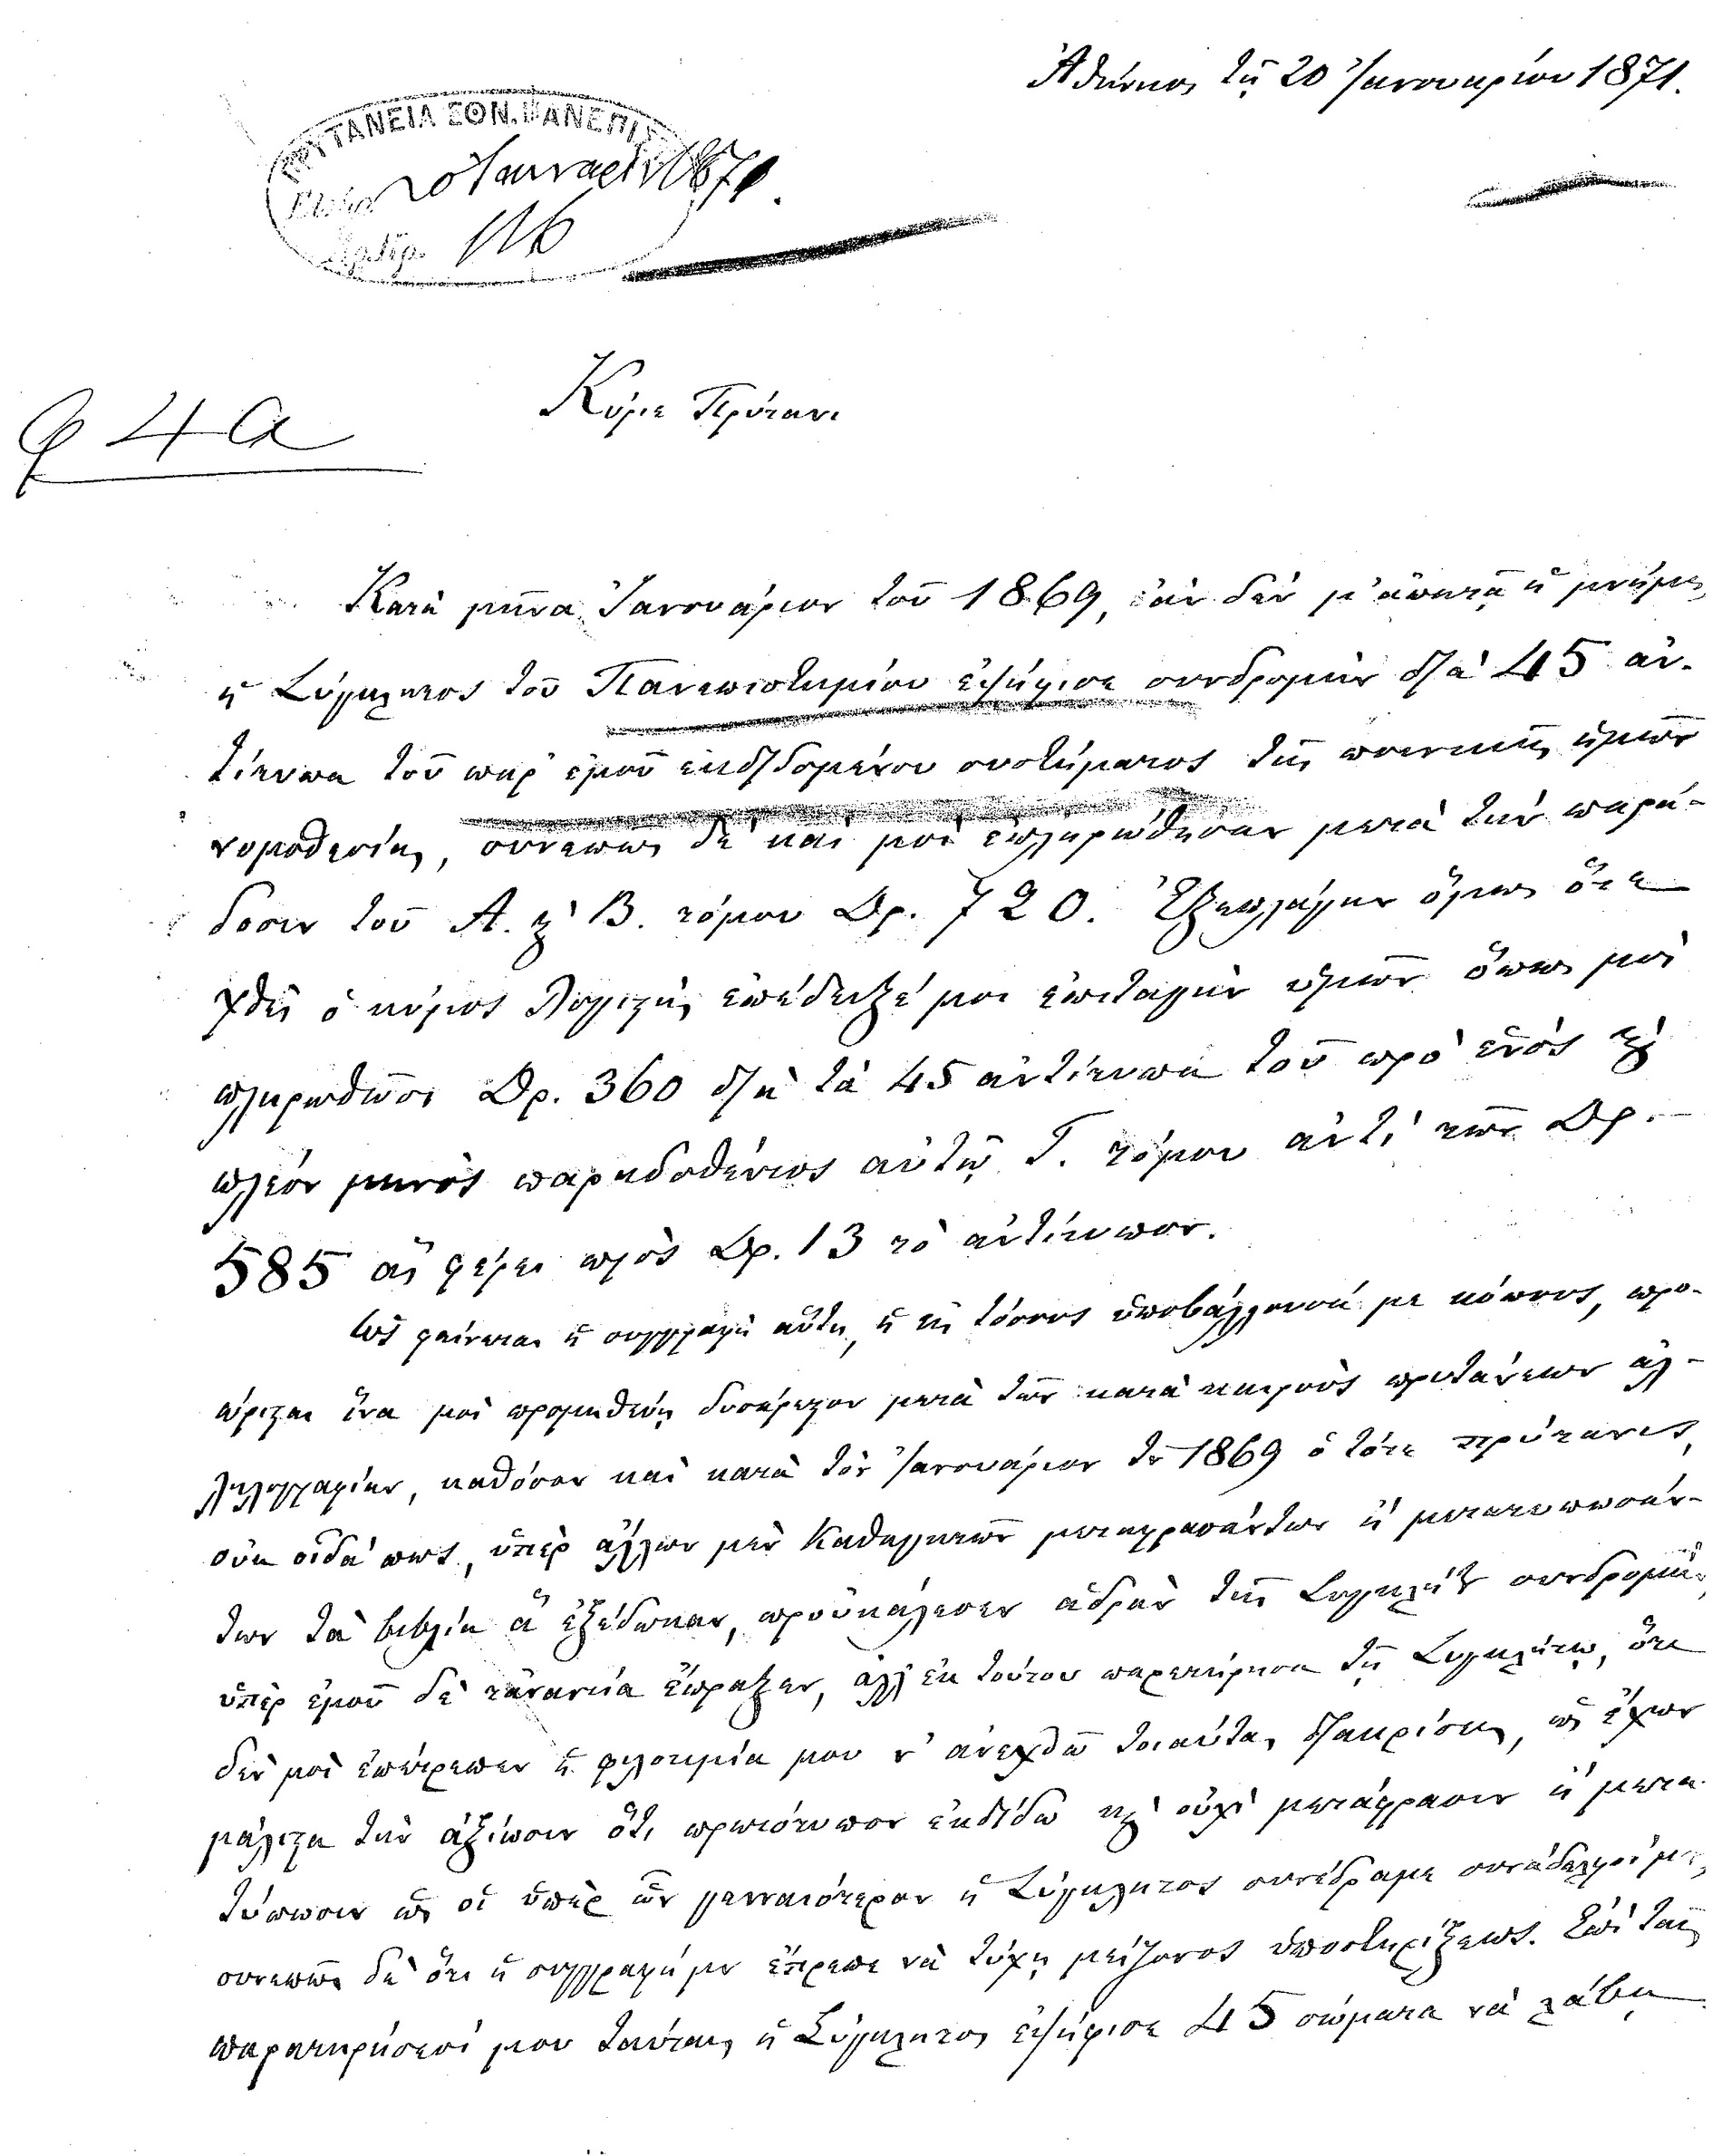 Ἀθήνησι τῇ 20 Ἰανουαρίου 1871.
ΠΡΥΤΑΝΕΙΑ ΕΘΝ. ΠΑΝΕΠΙΣ
20 Ἰανουαρ 1871.
Ἀριθ. 116
Φ 4 α
Κύριε Πρύτανι
Κατὰ μῆνα Ἰανουάριον τοῦ 1869, ἐὰν δὲν μ' ἀπατᾷ ἡ μνήμη,
ἡ Σύγκλητος τοῦ Πανεπιστημίου ἐψήφισε συνδρομὴν διὰ 45 ἀν-
τίτυπα τοῦ παρ' ἐμοῦ ἐκδιδομένου συστήματος τῆς ποινικῆς ἡμῶν
νομοθεσίας, συνεπῶς δὲ καὶ μοὶ ἐπληρώθησαν μετὰ τὴν παρά-
δοσιν τοῦ Α. κ̀ Β. τόμου Δρ. 720. Ἐξεπλάγην ὅμως ὅτε
χθὲς ὁ κύριος Λογιστὴς ἐπέδειξέ μοι ἐπιταγὴν ὑμῶν ὅπως μοὶ
πληρωθῶσι Δρ. 360 διὰ τὰ 45 ἀντίτυπα τοῦ πρὸ ἑνὸς κ̀
πλέον μηνὸς παραδοθέντος αὐτῷ Γ. τόμου ἀντὶ τῶν Δρ.
585 ἃς φέρει πρὸς Δρ. 13 τὸ ἀντίτυπον.
Ὡς φαίνεται ἡ συγγραφὴ αὕτη, ἡ εἰς τόσους ὑποβάλλουσά με κόπους, προ-
ώρισται ἵνα μοὶ προμηθεύῃ δυσάρεστον μετὰ τῶν κατὰ καιροὺς πρυτάνεων ἀλ-
ληλογραφίαν, καθόσον καὶ κατὰ τὸν Ἰανουάριον τοῦ 1869 ὁ τότε πρύτανις,
οὐκ οἶδά πως, ὑπὲρ ἄλλων μὲν Καθηγητῶν μεταφρασάντων ἢ μετατυπωσάν-
των τὰ βιβλία ἃ ἐξέδωκαν, προὐκάλεσεν ἁδρὰν τῆς Συγκλήτου συνδρομὴν,
ὑπὲρ ἐμοῦ δὲ τἀναντία ἔπραξεν, ἀλλ' ἐκ τούτου παρετήρησα τῇ Συγκλήτῳ, ὅτι
δὲν μοὶ ἐπέτρεπεν ἡ φιλοτιμία μου ν' ἀνεχθῶ τοιαύτας διακρίσεις, ὡς ἔχων
μάλιστα τὴν ἀξίωσιν ὅτι πρωτότυπον ἐκδίδω κ̀ οὐχὶ μετάφρασιν ἢ μετα
τύπωσιν ὡς οἱ ὑπὲρ ὧν γενναιότερον ἡ Σύγκλητος συνέδραμε συνάδελφοί μου,
συνεπῶς δὲ ὅτι ἡ συγγραφή μου ἔπρεπε νὰ τύχῃ μείζονος ὑποστηρίξεως. Ἐπὶ ταῖς
παρατηρήσεσί μου ταύταις ἡ Σύγκλητος ἐψήφισε 45 σώματα νὰ λάβῃ